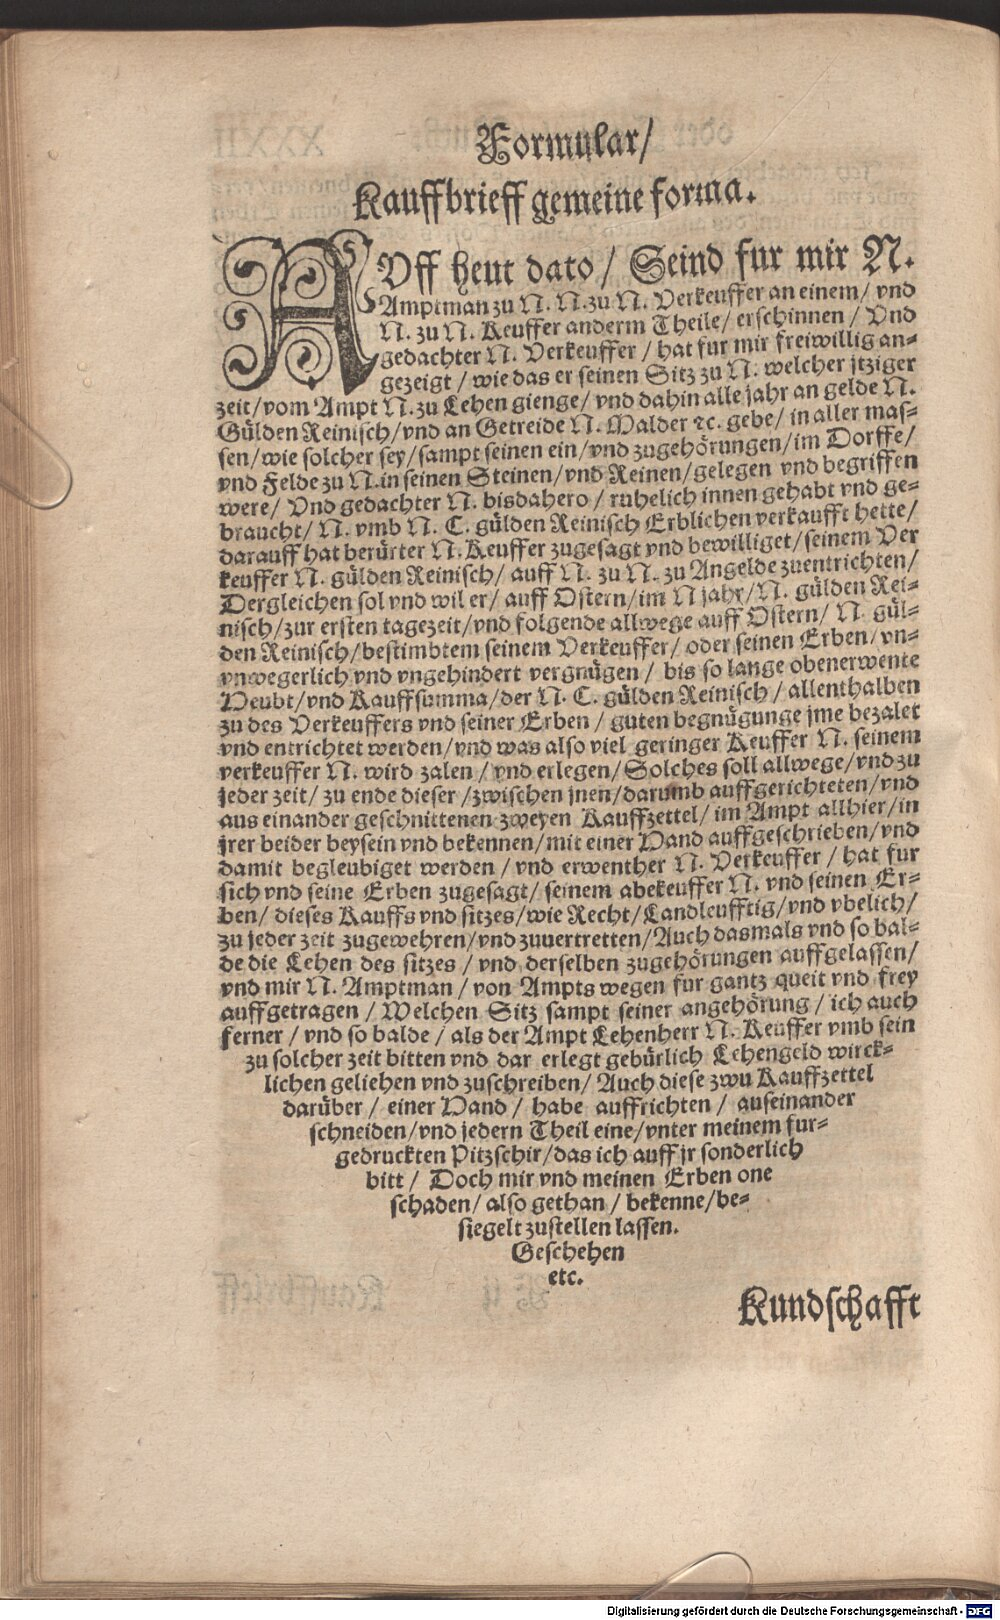 Formular/
Kauffbrieff gemeine forma.
AVff heut dato / Seind fur mir N.
Amptman zu N. N. zu N. Verkeuffer an einem/ vnd
N. zu N. Keuffer anderm Theile/ erschinnen / Vnd
gedachter N. Verkeuffer / hat fur mir freiwillig an-
gezeigt / wie das er seinen Sitz zu N. welcher jtziger
zeit/vom Ampt N. zu Lehen gienge/ vnd dahin alle jahr an gelde N.
Gülden Reinisch/vnd an Getreide N. Malder ꝛc. gebe/ in aller mas-
sen/wie solcher sey/sampt seinen ein/vnd zugehörungen/im Dorffe/
vnd Felde zu N.in seinen Steinen/vnd Reinen/gelegen vnd begriffen
were/ Vnd gedachter N. bisdahero / ruhelich innen gehabt vnd ge-
braucht/ N. vmb N. C. gülden Reinisch Erblichen verkaufft hette/
darauff hat berürter N. Keuffer zugesagt vnd bewilliget/seinem Ver
keuffer N. gülden Reinisch/ auff N. zu N. zu Angelde zuentrichten/
Dergleichen sol vnd wil er/ auff Ostern/im N jahr/N. gülden Rei-
nisch/zur ersten tagezeit/vnd folgende allwege auff Ostern/ N. gül-
den Reinisch/bestimbtem seinem Verkeuffer/ oder seinen Erben/vn-
vnwegerlich vnd vngehindert vergnügen / bis so lange obenerwente
Heubt/vnd Kauffsumma/der N. C. gülden Reinisch / allenthalben
zu des Verkeuffers vnd seiner Erben / guten begnügunge jme bezalet
vnd entrichtet werden/vnd was also viel geringer Keuffer N. seinem
verkeuffer N. wird zalen / vnd erlegen/Solches soll allwege/vnd zu
jeder zeit/ zu ende dieser /zwischen jnen/darumb auffgerichteten/vnd
aus einander geschnittenen zweyen Kauffzettel/ im Ampt allhier/in
jrer beider beysein vnd bekennen/mit einer Hand auffgeschrieben/vnd
damit begleubiget werden / vnd erwenther N. Verkeuffer / hat fur
sich vnd seine Erben zugesagt/ seinem abekeuffer N. vnd seinen Er-
ben/ dieses Kauffs vnd sitzes/wie Recht/Landleufftig/vnd vbelich/
zu jeder zeit zugewehren/vnd zuuertretten/Auch dasmals vnd so bal-
de die Lehen des sitzes / vnd derselben zugehörungen auffgelassen/
vnd mir N. Amptman / von Ampts wegen fur gantz queit vnd frey
auffgetragen / Welchen Sitz sampt seiner angehörung / ich auch
ferner / vnd so balde / als der Ampt Lehenherr N. Keuffer vmb sein
zu solcher zeit bitten vnd dar erlegt gebürlich Lehengeld wirck-
lichen geliehen vnd zuschreiben/ Auch diese zwu Kauffzettel
darüber / einer Hand / habe auffrichten / auseinander
schneiden/vnd jedern Theil eine/vnter meinem fur-
gedruckten Pitzschir/das ich auff jr sonderlich
bitt / Doch mir vnd meinen Erben one
schaden/ also gethan / bekenne/be-
siegelt zustellen lassen.
Geschehen
etc.
Kundschafft
Digitalisierung gefördert durch die Deutsche Forschungsgemeinschaft - DFG